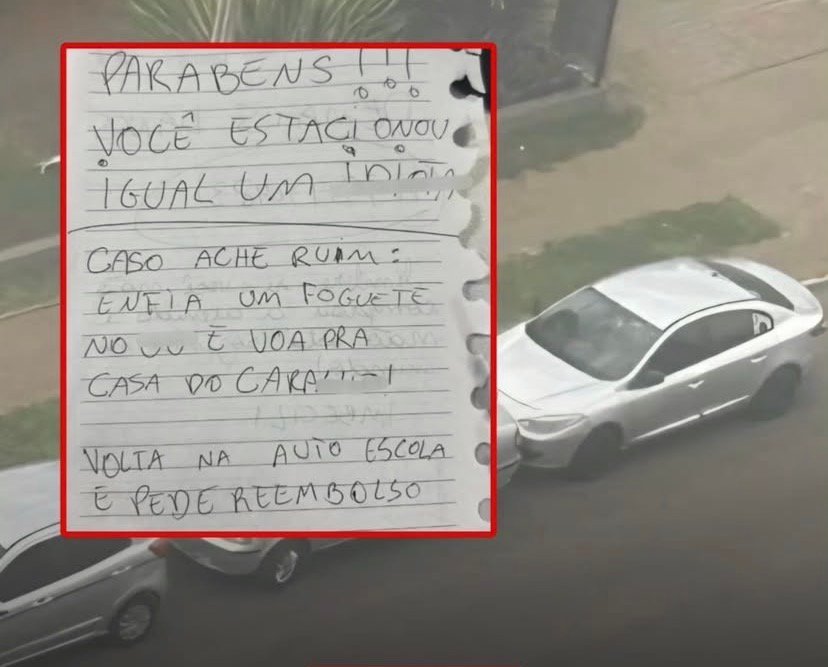 PARABENS !!!
VOCÊ ESTACIONOU
IGUAL UM
CASO ACHE RUIM:
ENFIA UM FOGUETE
NO E VOA PRA
CASA DO CARA
VOLTA NA AUTO ESCOLA
E PEDE REEMBOLSO